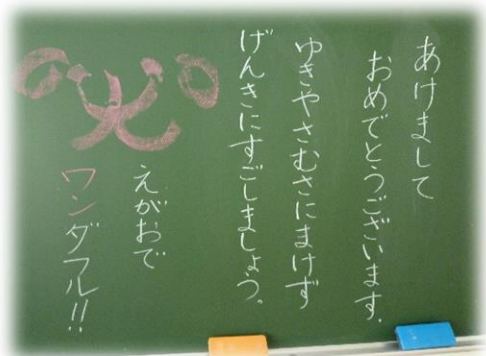 あけまして
おめでとうございます。
ゆきやさむさにまけず
げんきにすごしましょう。
えがおで
ワンダフル!!